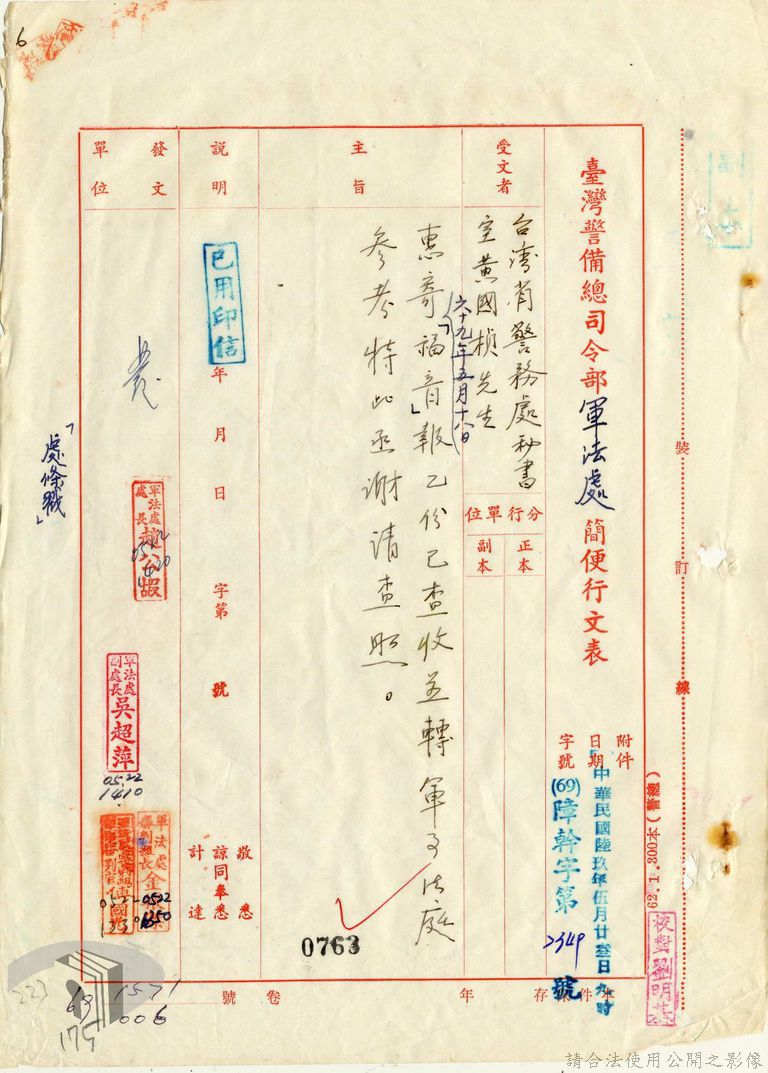 6
副本
裝
訂
線
62.1.300本(普總)
校對劉明
臺灣警備總司令部軍法處簡便行文表
附件
日期
中華民國陸玖年伍月廿叁日九時
字號
(69)障幹字第2349號
受文者
台灣省警務處秘書
室黃國楨先生
分行單位
正本
副本
主旨
(六十九年五月十八日)
惠寄「福音」報乙份已查收並轉軍事法庭
參考特此函謝請查照。
說明
已用印信
年 月 日 字第 號
敬悉
諒同奉悉
計達
0763
發文單位
軍法處處長
05.22
1420
「處條戳」
軍法處副處長吳超萍
05.22
1410
軍法處
組長金
0522
1350
05.22
1330
本件保存 年
卷 號
223
69
1571
006
175
請合法使用公開之影像